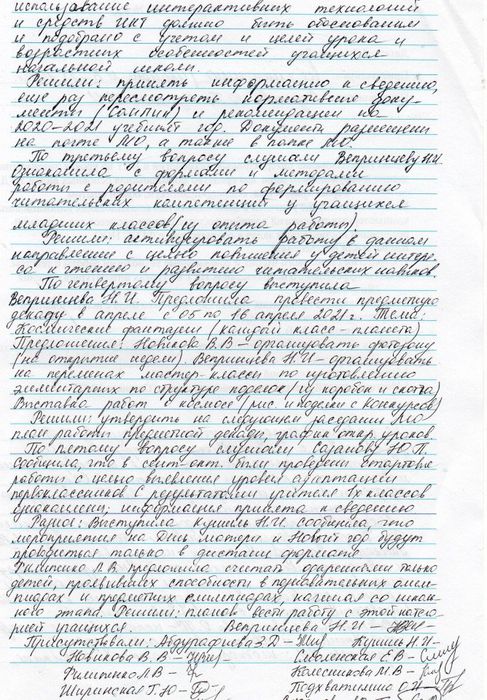 использование интерактивных технологий
и средств ИКТ должно быть обоснованным
и подобрано с учетом и целей урока и
возрастных особенностей учащихся
начальной школы.
Решили: принять информацию к сведению,
еще раз пересмотреть нормативные доку-
менты (СанПин) и рекомендации на
2020-2021 учебный год. Документы размещены
на почте МО, а также в папке МО.
По третьему вопросу слушали Вепринцеву Н.И.
Ознакомила с формами и методами
работы с родителями по формированию
читательских компетенций у учащихся
младших классов (из опыта работы).
Решили: активизировать работу в данном
направлении с целью повышения у детей интере-
са к чтению и развитию читательских навыков.
По четвертому вопросу выступила
Вепринцева Н.И. Предложила провести предметную
декаду в апреле с 05 по 16 апреля 2021г. Тема:
Космические фантазии (каждый класс - планета)
Предложения: Новикова В.В - организовать фотозону
(на открытие недели). Вепринцева Н.И - организовать
на переменах мастер-классы по изготовлению
элементарных по структуре поделок (из коробок и скотча)
Выставка работ о космосе (рис. и поделки с конкурсов)
Решили: утвердить на следующем заседании МО
план работы предметной декады, график откр. уроков.
По пятому вопросу слушали Сазанову Ю.П.
Сообщила, что в сент-окт. были проведены стартовые
работы с целью выявления уровня адаптации
первоклассников. С результатами учителя 1х классов
ознакомлены; информация принята к сведению
Разное: Выступила Кушиль Н.И. сообщила, что
мероприятия на День матери и Новый год будут
проводиться только в дистанц. формате
Филипенко Л.В. предложила считать одаренными только
детей, проявивших способности в познавательных олим-
пиадах и предметных олимпиадах, начиная со школь-
ного этапа. Решили: планово вести работу с этой катего-
рией учащихся. Вепринцева Н.И -
Присутствовали: Абдурафиева З.Д - Кушиль Н.И.
Новикова В.В - Смоленская Е.В -
Филипенко Л.В - Колесникова М.В -
Ширинская Т.Ю -